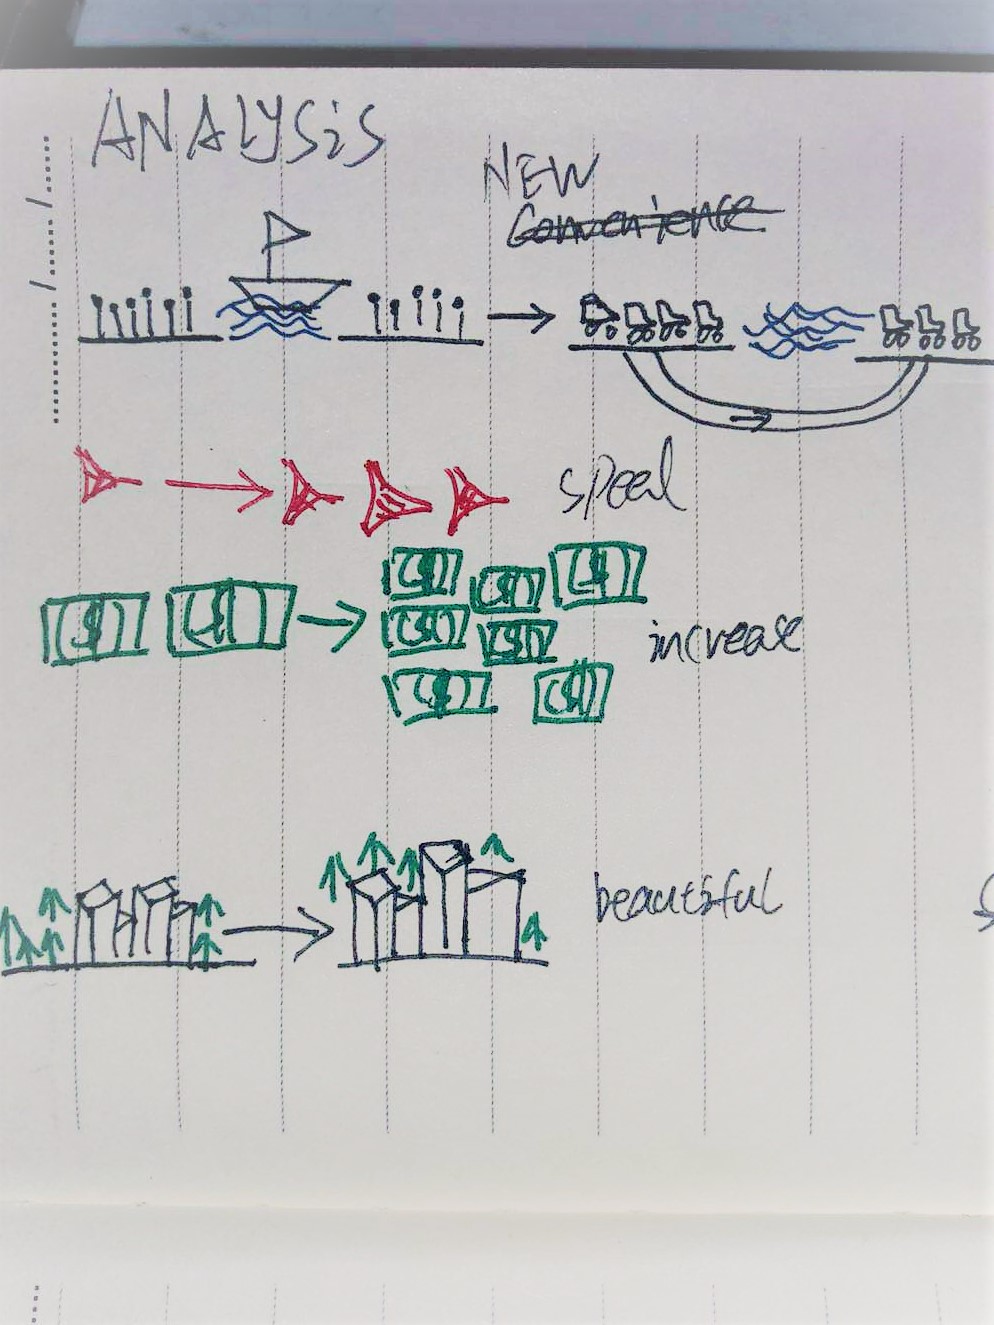 ANALYSiS
NEW
Convenience
speed
increase
beautiful